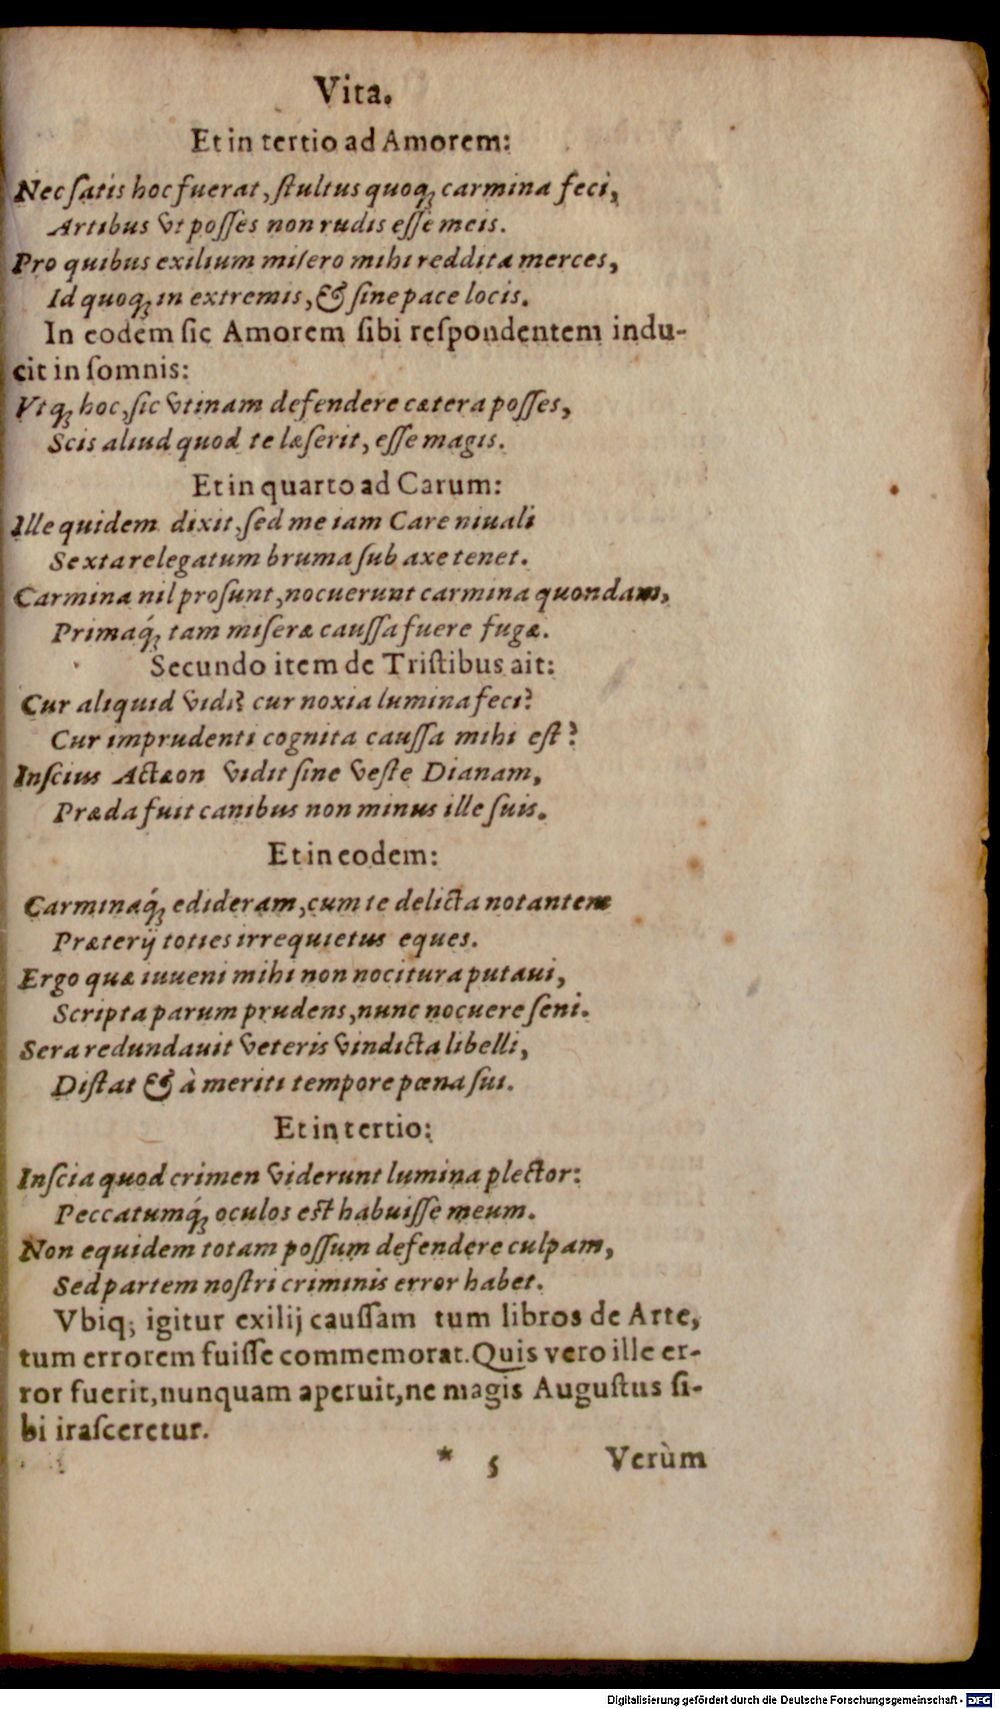 Vita.
Et in tertio ad Amorem:
Nec ſatis hoc fuerat, ſtultus quoq; carmina feci,
Artibus vt poſſes non rudis eſſe meis.
Pro quibus exilium miſero mihi reddita merces,
Id quoq; in extremis, & ſine pace locis.
In eodem ſic Amorem ſibi reſpondentem indu-
cit in ſomnis:
Vtq; hoc, ſic vtinam defendere cætera poſſes,
Scis aliud quod te læſerit, eſſe magis.
Et in quarto ad Carum:
Ille quidem dixit, ſed me iam Care niuali
Sexta relegatum bruma ſub axe tenet.
Carmina nil proſunt, nocuerunt carmina quondam,
Primaq́; tam miſeræ cauſſa fuere fugæ.
Secundo item de Triſtibus ait:
Cur aliquid vidi? cur noxia lumina feci?
Cur imprudenti cognita cauſſa mihi eſt?
Inſcius Actæon vidit ſine veſte Dianam,
Præda fuit canibus non minus ille ſuis.
Et in eodem:
Carminaq́; edideram, cum te delicta notantem
Præterij toties irrequietus eques.
Ergo quæ iuueni mihi non nocitura putaui,
Scripta parum prudens, nunc nocuere ſeni.
Sera redundauit veteris vindicta libelli,
Diſtat & à meriti tempore pœna ſui.
Et in tertio:
Inſcia quod crimen viderunt lumina plector:
Peccatumq́; oculos eſt habuiſſe meum.
Non equidem totam poſſum defendere culpam,
Sed partem noſtri criminis error habet.
Vbiq; igitur exilij cauſſam tum libros de Arte,
tum errorem fuiſſe commemorat. Quis vero ille er-
ror fuerit, nunquam aperuit, ne magis Auguſtus ſi-
bi iraſceretur.
* 5 Verùm
Digitalisierung gefördert durch die Deutsche Forschungsgemeinschaft - DFG